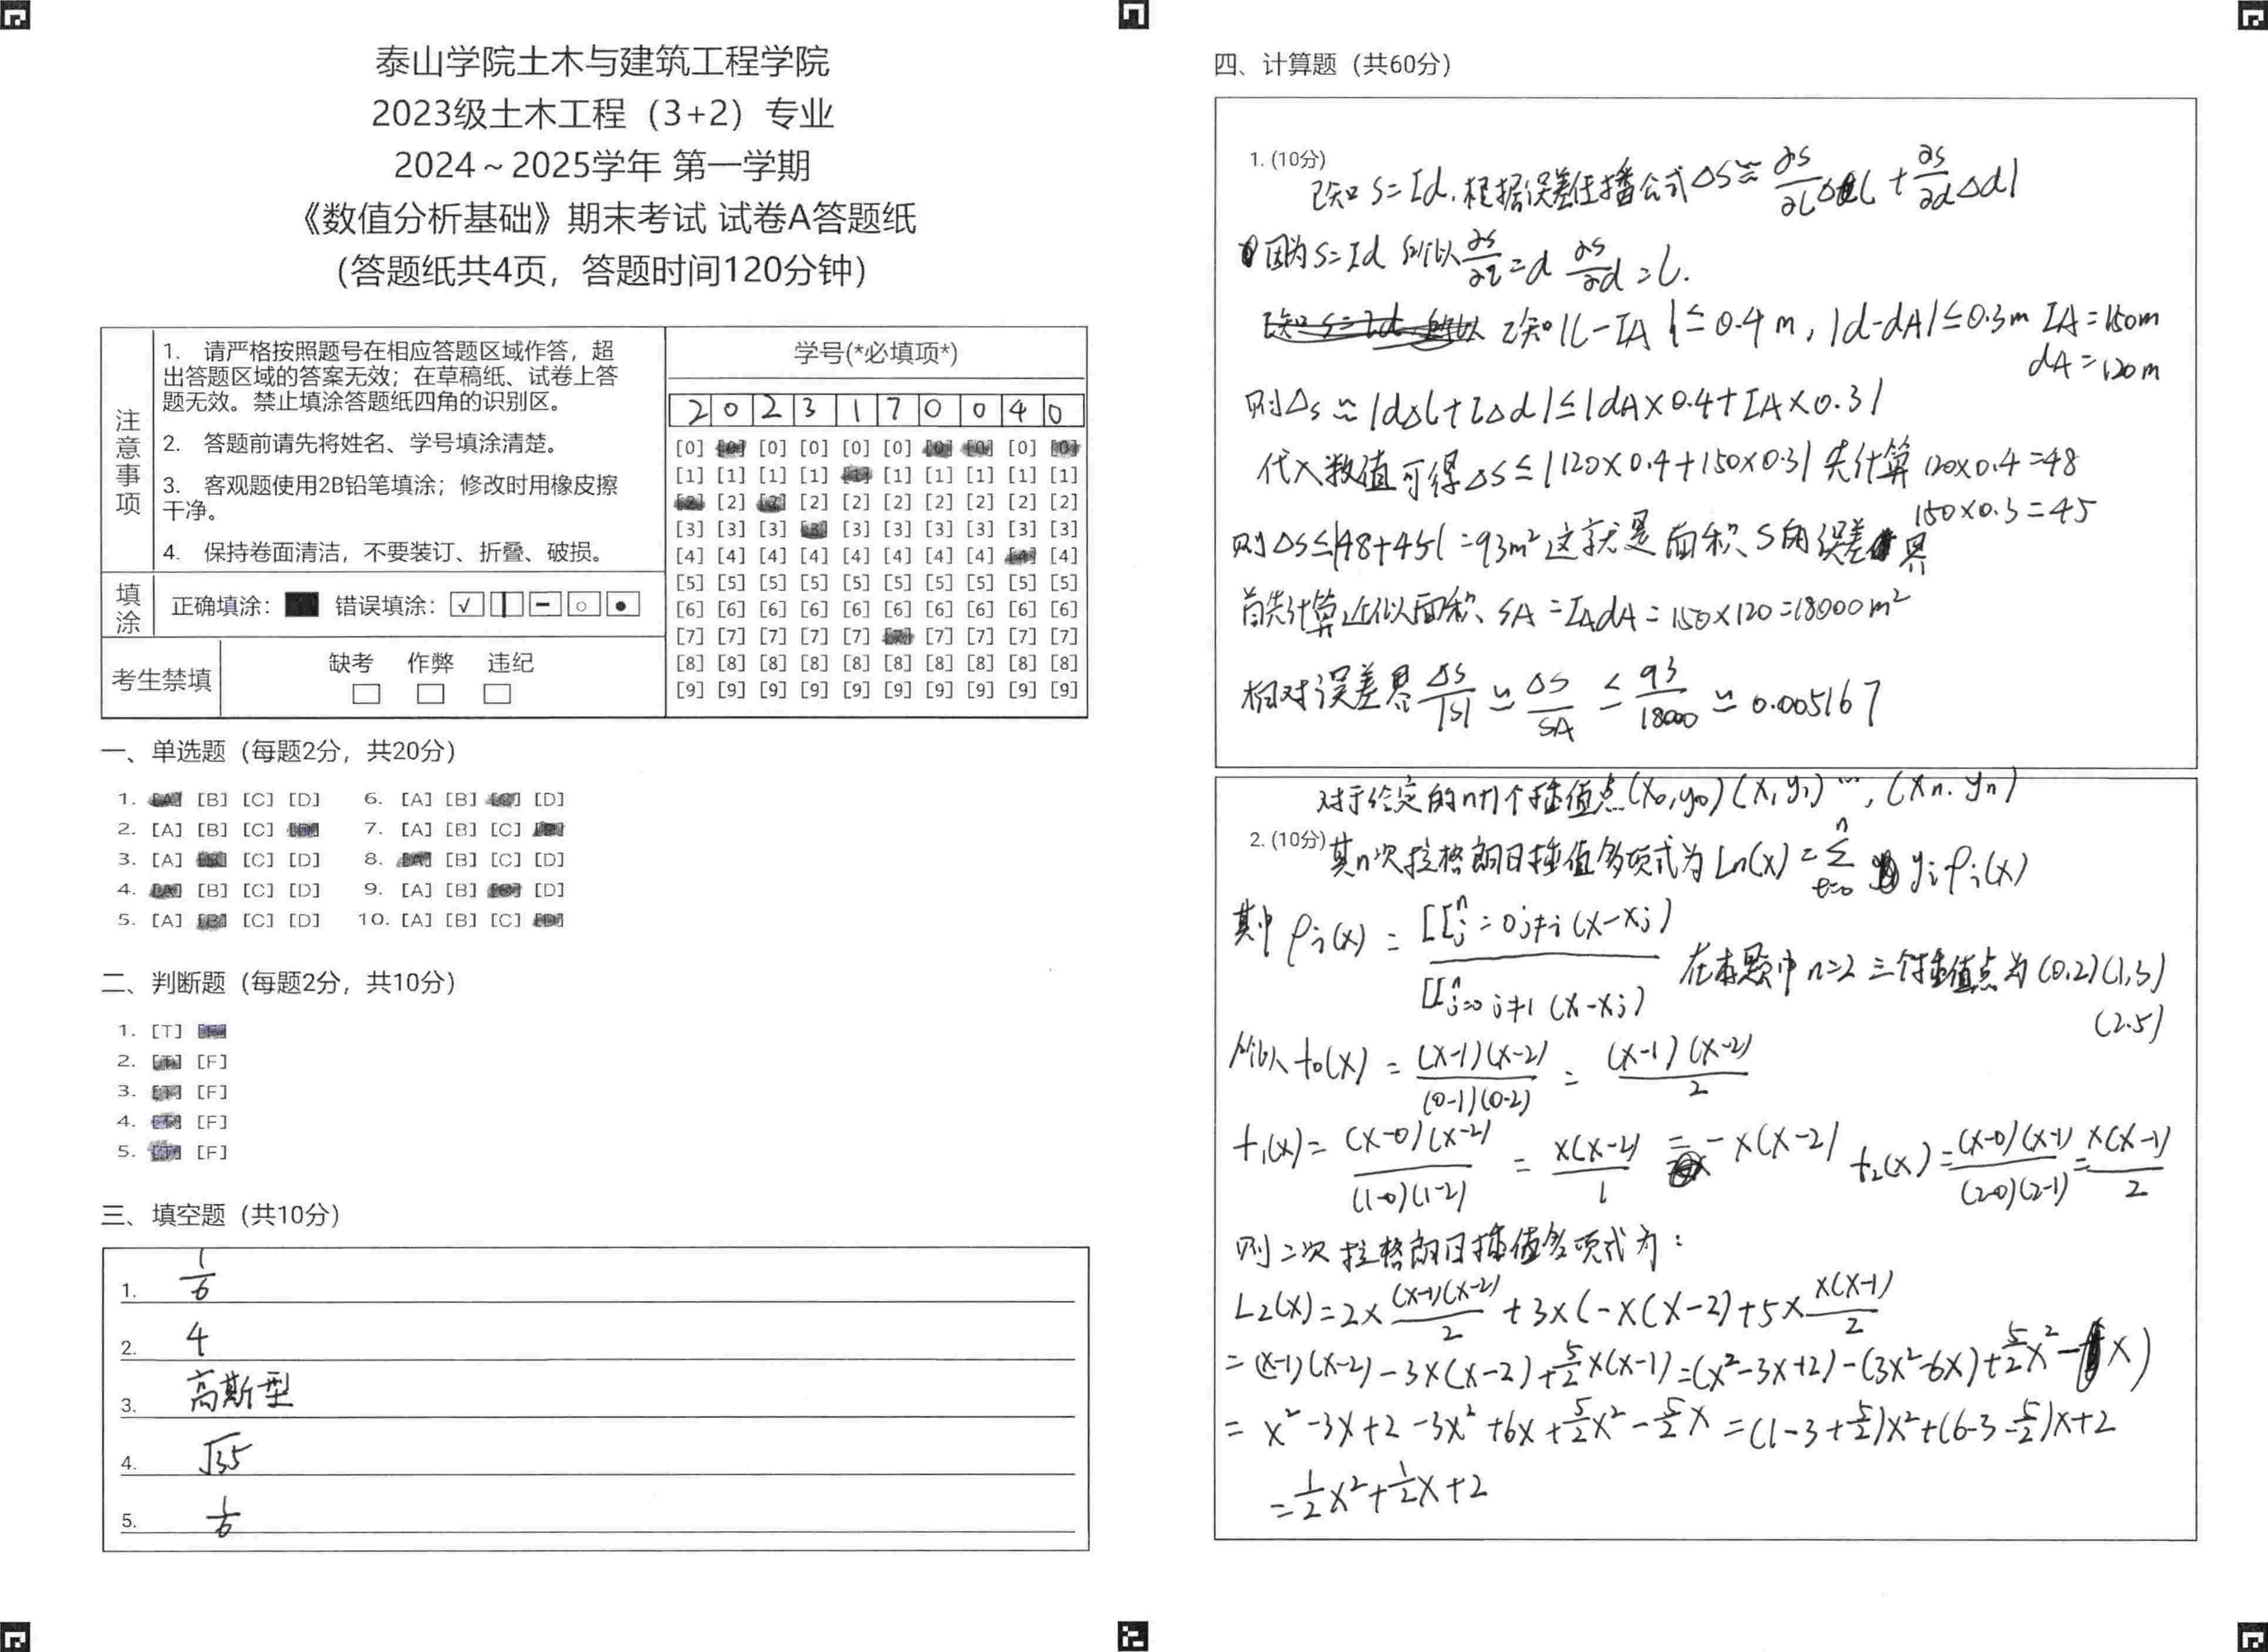 泰山学院土木与建筑工程学院
2023级土木工程（3+2）专业
2024～2025学年 第一学期
《数值分析基础》期末考试 试卷A答题纸
（答题纸共4页，答题时间120分钟）
注意事项
1. 请严格按照题号在相应答题区域作答，超
出答题区域的答案无效；在草稿纸、试卷上答
题无效。禁止填涂答题纸四角的识别区。
2. 答题前请先将姓名、学号填涂清楚。
3. 客观题使用2B铅笔填涂；修改时用橡皮擦
干净。
4. 保持卷面清洁，不要装订、折叠、破损。
填涂
正确填涂： 错误填涂：
考生禁填
缺考 作弊 违纪
学号(*必填项*)
2 0 2 3 1 7 0 0 4 0
[0] [0] [0] [0] [0] [0] [0] [0] [0] [0]
[1] [1] [1] [1] [1] [1] [1] [1] [1] [1]
[2] [2] [2] [2] [2] [2] [2] [2] [2] [2]
[3] [3] [3] [3] [3] [3] [3] [3] [3] [3]
[4] [4] [4] [4] [4] [4] [4] [4] [4] [4]
[5] [5] [5] [5] [5] [5] [5] [5] [5] [5]
[6] [6] [6] [6] [6] [6] [6] [6] [6] [6]
[7] [7] [7] [7] [7] [7] [7] [7] [7] [7]
[8] [8] [8] [8] [8] [8] [8] [8] [8] [8]
[9] [9] [9] [9] [9] [9] [9] [9] [9] [9]
一、单选题（每题2分，共20分）
1. [A] [B] [C] [D] 6. [A] [B] [C] [D]
2. [A] [B] [C] [D] 7. [A] [B] [C] [D]
3. [A] [B] [C] [D] 8. [A] [B] [C] [D]
4. [A] [B] [C] [D] 9. [A] [B] [C] [D]
5. [A] [B] [C] [D] 10. [A] [B] [C] [D]
二、判断题（每题2分，共10分）
1. [T] [F]
2. [T] [F]
3. [T] [F]
4. [T] [F]
5. [T] [F]
三、填空题（共10分）
1. 1/6
2. 4
3. 高斯型
4. √35
5. 1/6
四、计算题（共60分）
1. (10分)
已知 S=Id. 根据误差传播公式 ΔS≈ ∂S/∂l Δl + ∂S/∂d Δd|
因为S=Id 所以 ∂S/∂l =d ∂S/∂d =l.
已知|l-IA|≤0.4m, |d-dA|≤0.3m IA=150m
dA=120m
则Δs≈|dΔl+IΔd|≤|dA×0.4+IA×0.3|
代入数值可得ΔS≤|120×0.4+150×0.3| 先计算 120×0.4=48
150×0.3=45
则ΔS≤|48+45|=93m² 这就是面积S的误差界
首先计算近似面积 SA=IAdA=150×120=18000m²
相对误差界 ΔS/|S| ≃ ΔS/SA ≤ 93/18000 ≃ 0.005167
对于给定的n+1个插值点(x₀,y₀)(x₁y₁)…,(xn.yn)
2. (10分) 其n次拉格朗日插值多项式为 Ln(x)=∑ yᵢℓᵢ(x)
其中 ℓᵢ(x) = ∏ⁿj=0 j≠i (x-xj) / ∏ⁿj=0 j≠1 (xi-xj) 在本题中n=2 三个插值点为(0,2)(1,3)
(2.5)
所以 t₀(x) = (x-1)(x-2)/(0-1)(0-2) = (x-1)(x-2)/2
t₁(x)= (x-0)(x-2)/(1-0)(1-2) = x(x-2)/1 = -x(x-2) t₂(x)= (x-0)(x-1)/(2-0)(2-1) = x(x-1)/2
则二次拉格朗日插值多项式为：
L₂(x)=2× (x-1)(x-2)/2 +3×(-x(x-2)+5× x(x-1)/2
=(x-1)(x-2)-3x(x-2)+5/2x(x-1)=(x²-3x+2)-(3x²-6x)+5/2x²- x)
= x²-3x+2-3x²+6x+5/2x²-5/2x =(1-3+5/2)x²+(6-3-5/2)x+2
=1/2x²+1/2x+2